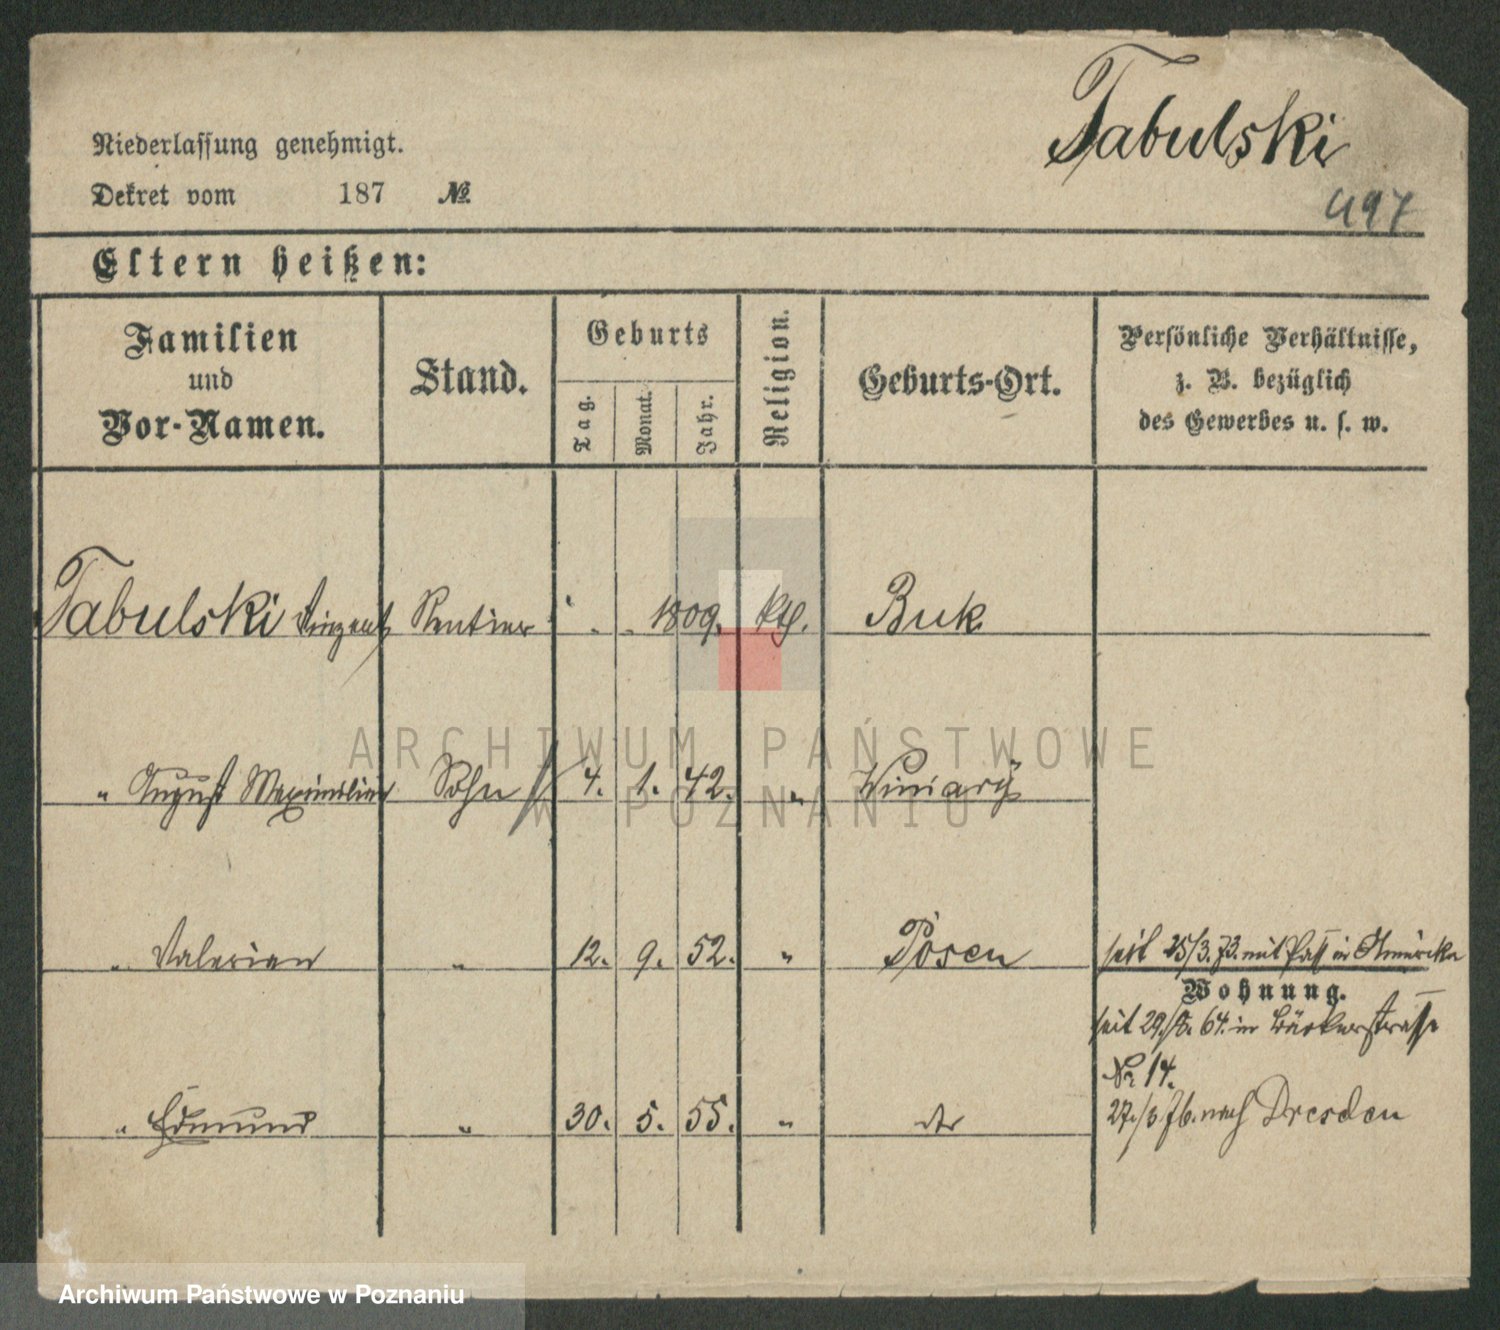 Tabulski
497
Niederlassung genehmigt.
Dekret vom 187 №
Eltern heißen:
Familien und Vor-Namen.
Stand.
Geburts
Tag.
Monat.
Jahr.
Religion.
Geburts-Ort.
Persönliche Verhältnisse,
z. B. bezüglich
des Gewerbes u. s. w.
Tabulski Vinzent Rentier " . . 1809. kth. Buk
" August Maximilian Sohn 4. 1. 42. " Winiary
" Valerian " 12. 9. 52. " Posen seit 25/3. 73. mit Paß in Amerika
Wohnung.
seit 29/ 64. in Bäckerstrasse
Nr 14.
" Edmund " 30. 5. 55. " dto 27./3 76. nach Dresden
ARCHIWUM PAŃSTWOWE
W POZNANIU
Archiwum Państwowe w Poznaniu